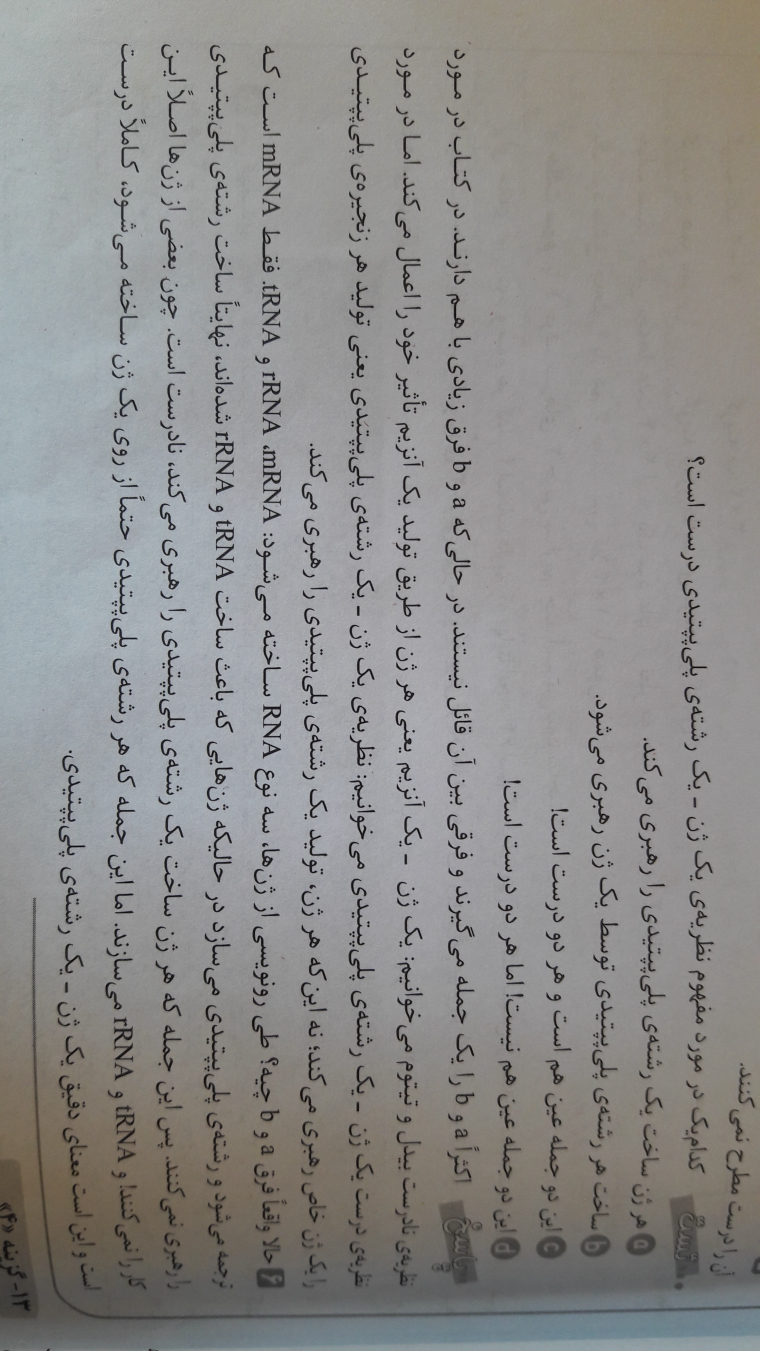 آن را درست مطرح نمی‌کنند.
تست کدام‌یک در مورد مفهوم نظریه‌ی یک ژن - یک رشته‌ی پلی‌پپتیدی درست است؟
a هر ژن ساخت یک رشته‌ی پلی‌پپتیدی را رهبری می‌کند.
b ساخت هر رشته‌ی پلی‌پپتیدی توسط یک ژن رهبری می‌شود.
c این دو جمله عین هم است و هر دو درست است!
d این دو جمله عین هم نیست! اما هر دو درست است!
پاسخ اکثراً a و b را یک جمله می‌گیرند و فرقی بین آن قائل نیستند. در حالی‌که a و b فرق زیادی با هم دارند. در کتاب در مورد
نظریه‌ی نادرست بیدل و تیتوم می‌خوانیم: یک ژن - یک آنزیم یعنی هر ژن از طریق تولید یک آنزیم تأثیر خود را اعمال می‌کند. اما در مورد
نظریه‌ی درست یک ژن - یک رشته‌ی پلی‌پپتیدی می‌خوانیم: نظریه‌ی یک ژن - یک رشته‌ی پلی‌پپتیدی یعنی تولید هر زنجیره‌ی پلی‌پپتیدی
را یک ژن خاص رهبری می‌کند؛ نه این که هر ژن، تولید یک رشته‌ی پلی‌پپتیدی را رهبری می‌کند.
؟ حالا واقعاً فرق a و b چیه؟ طی رونویسی از ژن‌ها، سه نوع RNA ساخته می‌شود: mRNA، rRNA و tRNA. فقط mRNA است که
ترجمه می‌شود و رشته‌ی پلی‌پپتیدی می‌سازد در حالیکه ژن‌هایی که باعث ساخت tRNA و rRNA شده‌اند، نهایتاً ساخت رشته‌ی پلی‌پپتیدی
را رهبری نمی‌کنند. پس این جمله که هر ژن ساخت یک رشته‌ی پلی‌پپتیدی را رهبری می‌کند، نادرست است. چون بعضی از ژن‌ها اصلاً این
کار را نمی‌کنند! و tRNA و rRNA می‌سازند. اما این جمله که هر رشته‌ی پلی‌پپتیدی حتماً از روی یک ژن ساخته می‌شود، کاملاً درست
است و این است معنای دقیق یک ژن - یک رشته‌ی پلی‌پپتیدی.
۱۳- گزینه «۴»